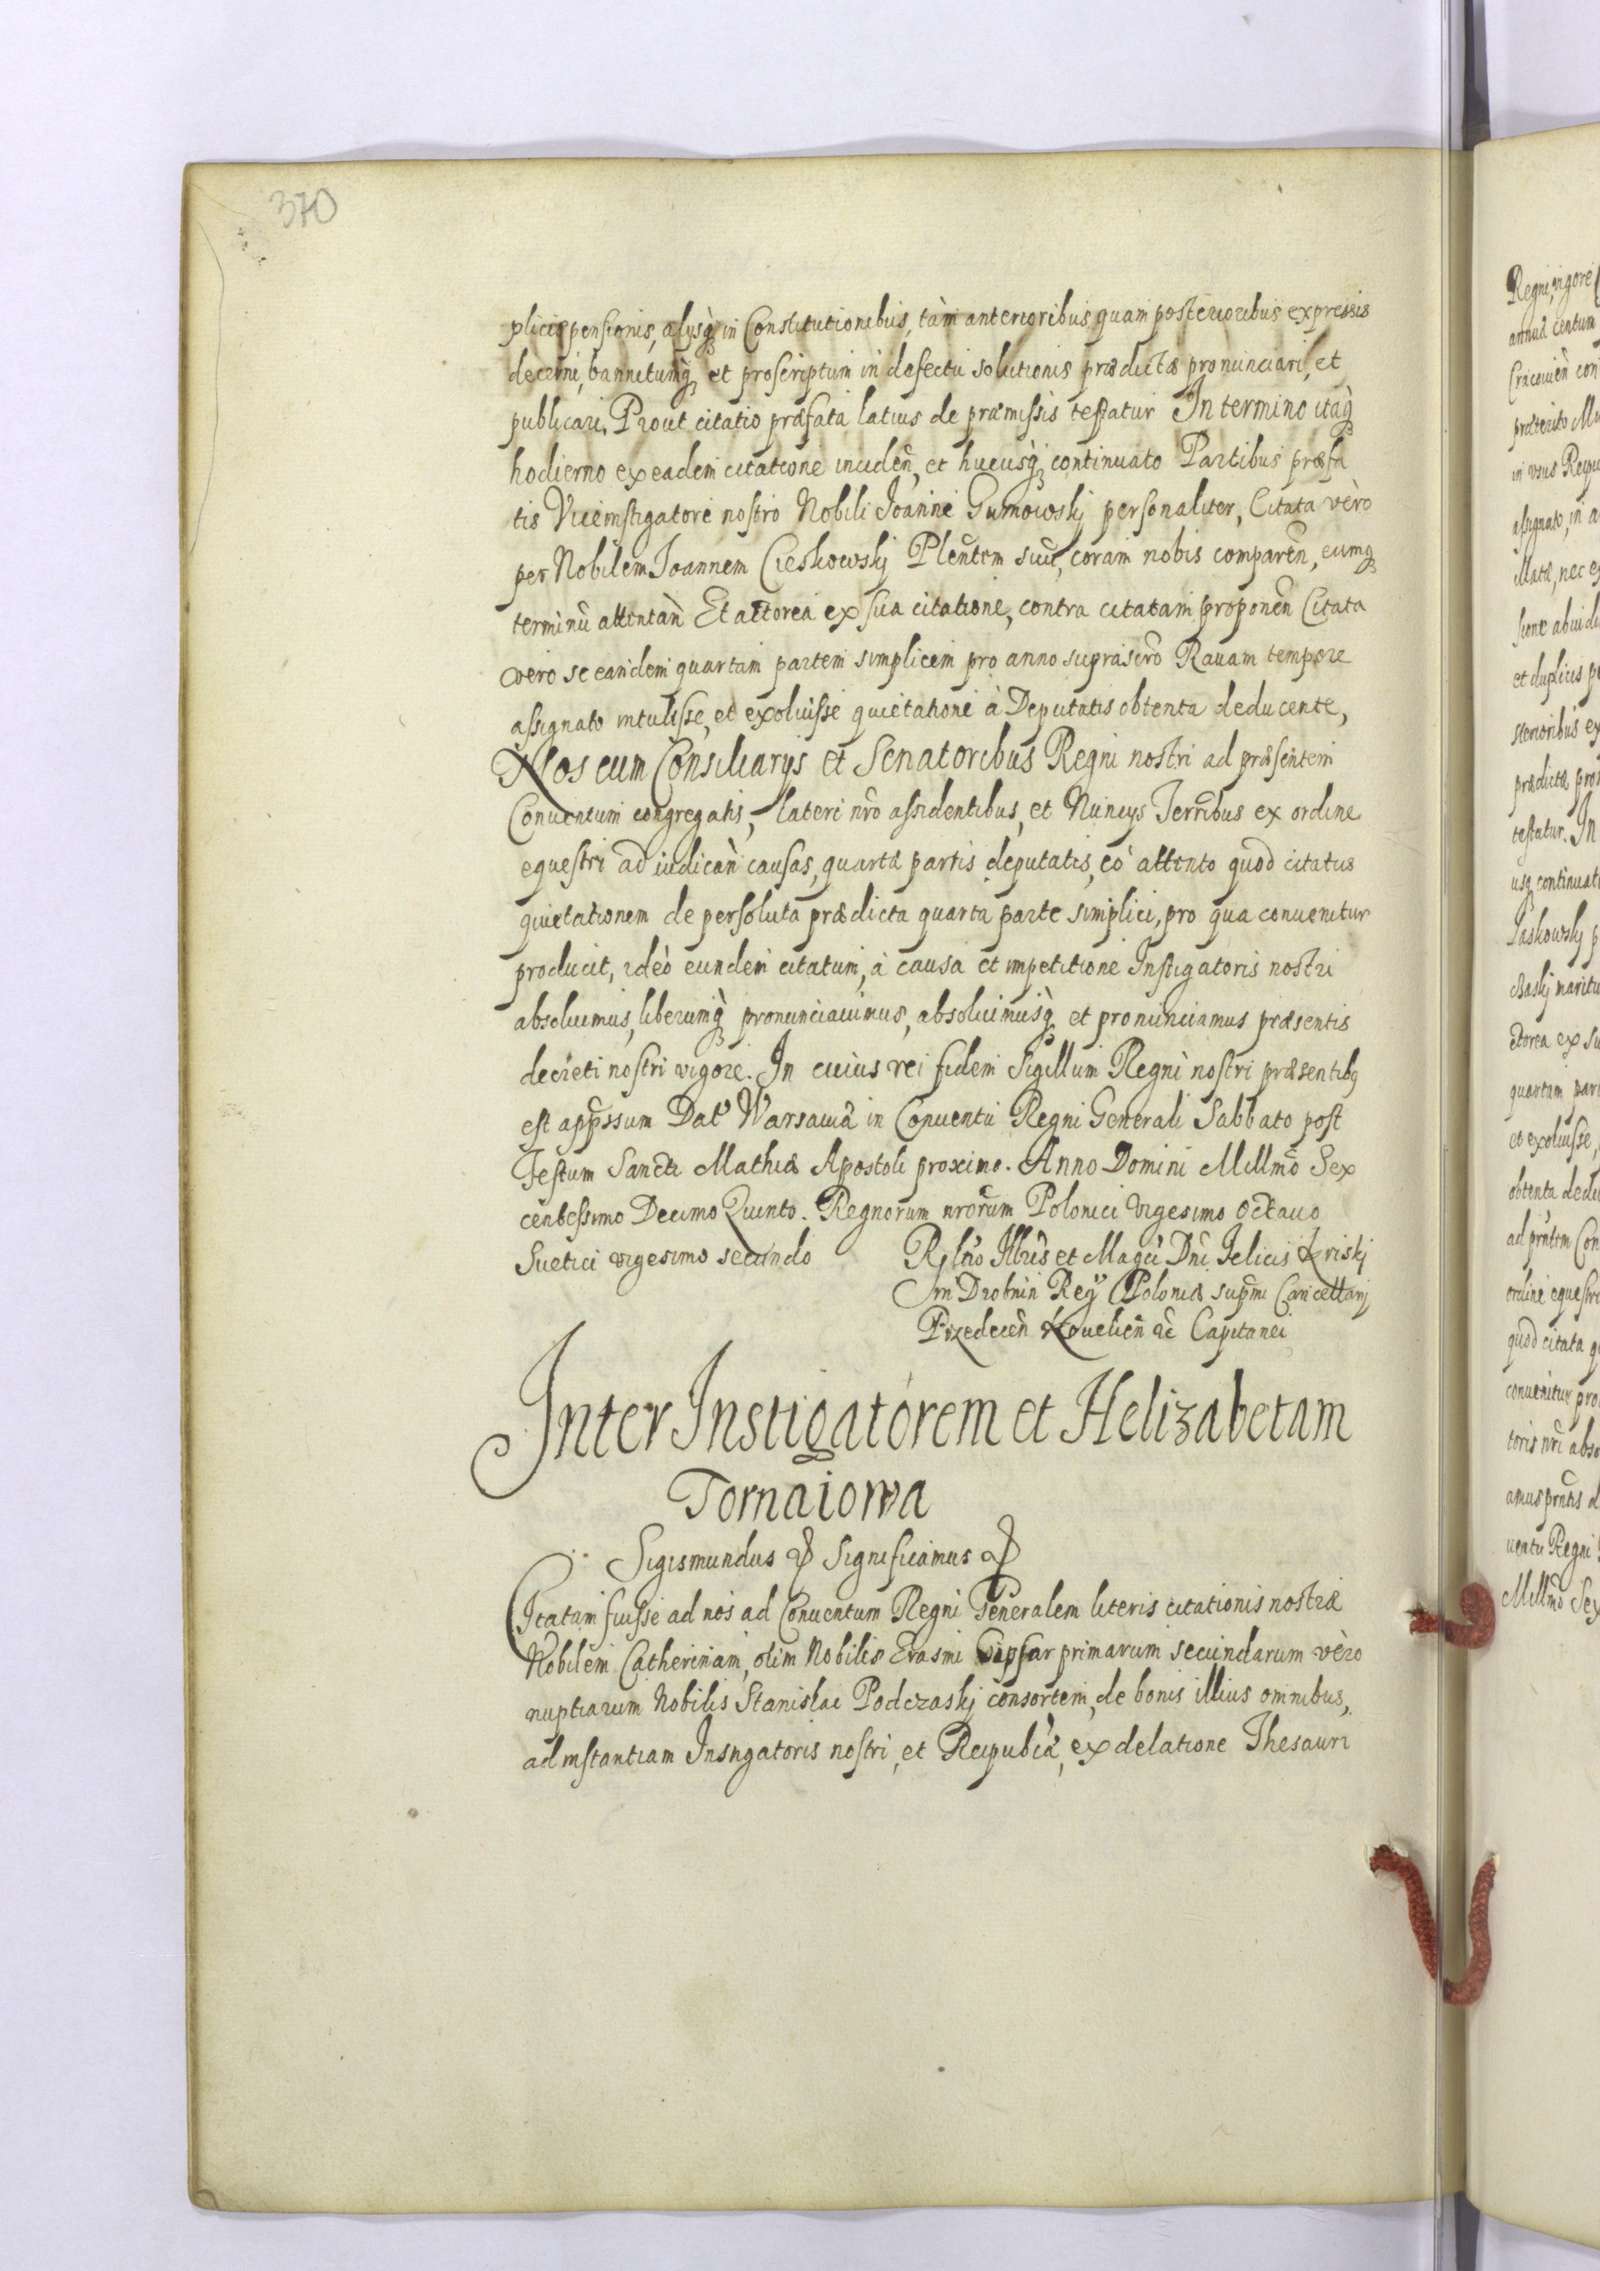 370
plicis pensionis, alijsq̀ in Constitutionibus, tàm anterioribus quam posterioribus expressis
decerni, bannitumq̀ et proscriptum in defectu solutionis prædictæ pronunciari, et
publicari. Prout citatio præfata latius de præmissis testatur In termino itaq̀
hodierno ex eadem citatione inciden̄, et hucusq̀ continuato Partibus præfa
tis Viceinstigatore nostro Nobili Joanne Gumowskj personaliter, Citata vèro
per Nobilem Joannem Cieskowskj Plen̄tem suū, coram nobis comparen̄, eumq̀
terminū attentan̄ Et actorea ex sua citatione, contra citatam proponen̄ Citata
vero se eandem quartam partem simplicem pro anno suprascr̄o Rauam tempore
assignato intulisse, et exoluisse quietatione à Deputatis obtenta deducente,
Nos cum Consiliarijs et Senatoribus Regni nostri ad præsentem
Conuentum congregatis, lateri nr̄o assidentibus, et Nuncijs Terr̄ibus ex ordine
equestri ad iudican̄ causas, quartæ partis deputatis, eò attento quod citatus
quietationem de persoluta prædicta quarta parte simplici, pro qua conuenitur
producit, ideò eundem citatum, à causa et impetitione Instigatoris nostri
absoluimus, liberumq̀ pronunciauimus, absoluimusq̀ et pronunciamus præsentis
decreti nostri vigore. In cuius rei fidem Sigillum Regni nostri præsentibq
est app̄ssum Dat' Warsauiæ in Conuentu Regni Generali Sabbato post
Festum Sancti Mathiæ Apostoli proximo. Anno Domini Millm̄o Sex
centessimo Decimo Quinto. Regnorum nrorum Polonici vigesimo octauo
Suetici vigesimo secundo
Rel̄tio Illrīs et Magcī Dnī Felicis Kriskj
In Drobnin Reg̈ Poloniæ supm̄i Cancellarij
Przedecen̄ Kouelien̄ &c Capitanei
Inter Instigatorem et Helizabetam
Tornaiowa
Sigismundus & Significamus &
Citatam fuisse ad nos ad Conuentum Regni Generalem literis citationis nostræ
Nobilem Catherinam, olim Nobilis Erasmi primarum secundarum vèro
nuptiarum Nobilis Stanislai Podczaskj consortem, de bonis illius omnibus,
ad instantiam Instigatoris nostri, et Reipublīcæ, ex delatione Thesauri
Regni, vigore
annuâ centum
Cracouien̄ con
præterito
in vsus Reipu
assignato, in
illatæ, nec
et duplicis
sterioribus
prædictæ
testatur. In
usq̀ continuat
quartam
et exoluisse,
obtenta dedu
ordine equestri
quod citata
conuenitur pro
toris nr̄i
Millm̄o Sex